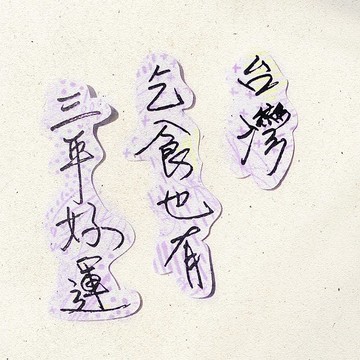 台灣
乞食也有
三年好運